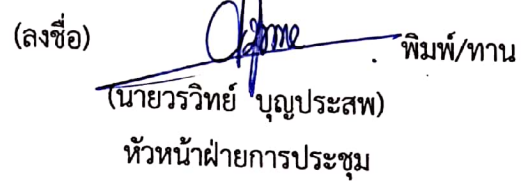 (ลงชื่อ) พิมพ์/ทาน
(นายวรวิทย์ บุญประสพ)
หัวหน้าฝ่ายการประชุม